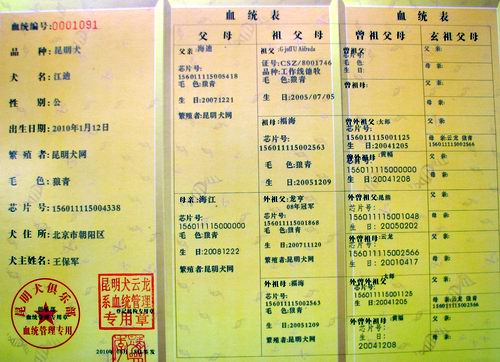 血统编号:0001091
品 种:昆明犬
犬 名:江迪
性 别:公
出生日期:2010年1月12日
繁殖者:昆明犬网
毛 色:狼青
芯片号:156011115004338
犬住所:北京市朝阳区
犬主姓名:王保军
昆明犬俱乐部
血统管理专用
昆明犬云龙
系血统管理
专用章
血统表
父母
父亲:海迪
芯片号:
156011115005418
毛 色:狼青
生 日:20071221
繁殖者:昆明犬网
母亲:海江
芯片号:
156011115000000
毛 色:狼青
生 日:20081222
繁殖者:昆明犬网
祖父母
祖父:
证号:CSZ/8001746
品种:工作线德牧
毛 色:狼青
生 日:2005/07/05
祖母:福海
芯片号:
156011115002563
毛 色:狼青
生 日:20051209
外祖父:北亨
08年冠军
芯片号:
156011115001868
毛 色:狼青
生 日:20071120
繁殖者:昆明犬网
外祖母:福海
芯片号:
156011115002563
毛 色:狼青
生 日:20051209
繁殖者:昆明犬网
血统表
曾祖父母
曾祖父:
芯片号:
毛 色:
生 日:
曾祖母:
曾外祖父:太郎
芯片号:
156011115001125
生 日:20041205
曾外祖母:黄幅
156011115002566
生 日:20041208
曾外祖父:昆熊
芯片号:
156011115001048
生 日:20050202
曾外祖母:云龙
芯片号:
156011115001131
生 日:20010417
太郎
曾外祖父:
芯片号:
156011115001125
生 日:20041205
曾外祖母:黄福
156011115002566
生 日:20041208
玄祖父母
父亲:
母亲:
父亲:
母亲:
父亲:
母亲:云龙 狼青
156011115002566
父亲:
母亲:
父亲:
母亲:
父亲:
母亲:
父亲:
母亲:云龙 狼青
156011115002566
父亲:
母亲: